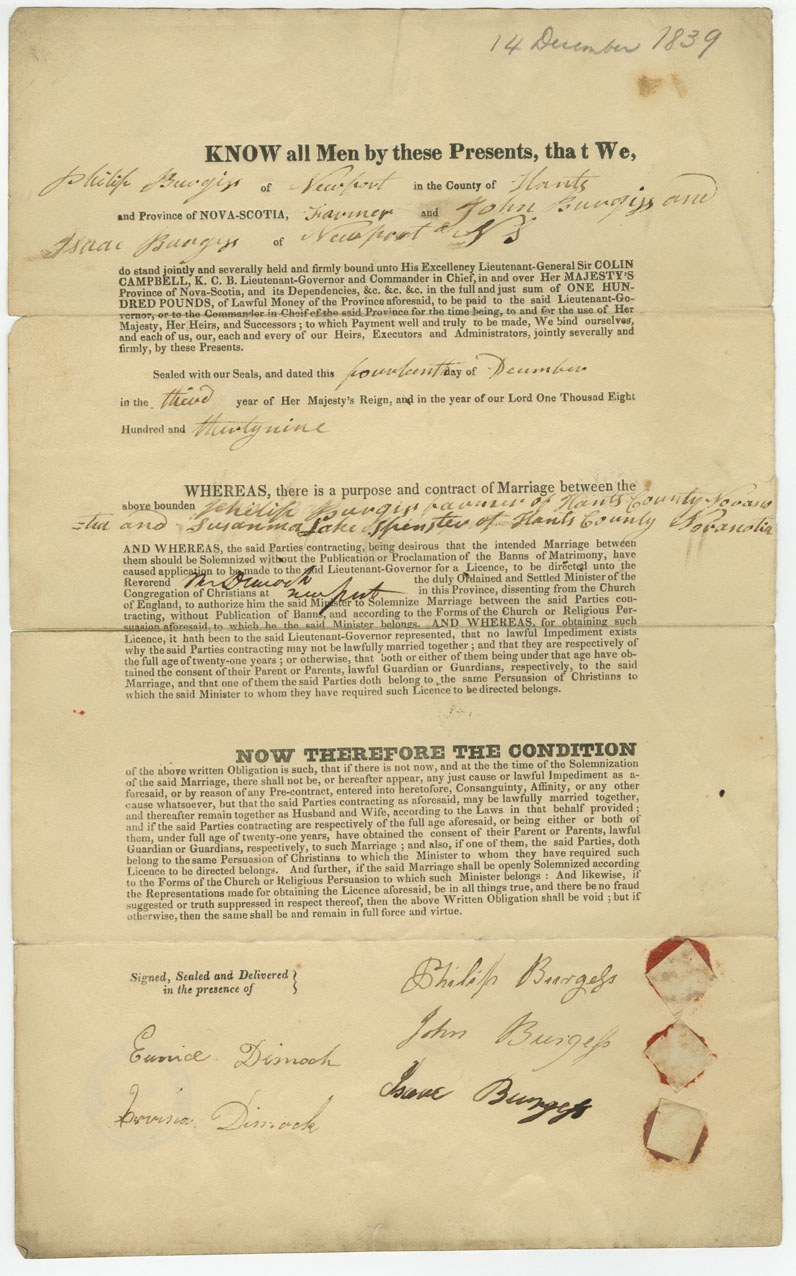 14 December 1839
KNOW all Men by these Presents, that We,
Philip Burgiss of Newport in the County of Hants
and Province of NOVA-SCOTIA, Farmer and John Burgiss and
Isaac Burgess of Newport N S
do stand jointly and severally held and firmly bound unto His Excellency Lieutenant-General Sir COLIN
CAMPBELL, K. C. B. Lieutenant-Governor and Commander in Chief, in and over Her MAJESTY'S
Province of Nova-Scotia, and its Dependencies, &c. &c. &c. in the full and just sum of ONE HUN-
DRED POUNDS, of Lawful Money of the Province aforesaid, to be paid to the said Lieutenant-Go-
vernor, or to the Commander in Cheif of the said Province for the time being, to and for the use of Her
Majesty, Her Heirs, and Successors; to which Payment well and truly to be made, We bind ourselves,
and each of us, our, each and every of our Heirs, Executors and Administrators, jointly severally and
firmly, by these Presents.
Sealed with our Seals, and dated this fourteenth day of December
in the third year of Her Majesty's Reign, and in the year of our Lord One Thousad Eight
Hundred and thirtynine
WHEREAS, there is a purpose and contract of Marriage between the
above bounden Philip Burgiss farmer of Hants County Novasco
=tia and Susanna Lake Spinster of Hants County Novascotia
AND WHEREAS, the said Parties contracting, being desirous that the intended Marriage between
them should be Solemnized without the Publication or Proclamation of the Banns of Matrimony, have
caused application to be made to the said Lieutenant-Governor for a Licence, to be directed unto the
Reverend Mr Dimock the duly Ordained and Settled Minister of the
Congregation of Christians at newport in this Province, dissenting from the Church
of England, to authorize him the said Minister to Solemnize Marriage between the said Parties con-
tracting, without Publication of Banns, and according to the Forms of the Church or Religious Per-
suasion aforesaid to which he the said Minister belongs. AND WHEREAS, for obtaining such
Licence, it hath been to the said Lieutenant-Governor represented, that no lawful Impediment exists
why the said Parties contracting may not be lawfully married together; and that they are respectively of
the full age of twenty-one years; or otherwise, that both or either of them being under that age have ob-
tained the consent of their Parent or Parents, lawful Guardian or Guardians, respectively, to the said
Marriage, and that one of them the said Parties doth belong to the same Persuasion of Christians to
which the said Minister to whom they have required such Licence to be directed belongs.
NOW THEREFORE THE CONDITION
of the above written Obligation is such, that if there is not now, and at the the time of the Solemnization
of the said Marriage, there shall not be, or hereafter appear, any just cause or lawful Impediment as a-
foresaid, or by reason of any Pre-contract, entered into heretofore, Consanguinty, Affinity, or any other
cause whatsoever, but that the said Parties contracting as aforesaid, may be lawfully married together,
and thereafter remain together as Husband and Wife, according to the Laws in that behalf provided;
and if the said Parties contracting are respectively of the full age aforesaid, or being either or both of
them, under full age of twenty-one years, have obtained the consent of their Parent or Parents, lawful
Guardian or Guardians, respectively, to such Marriage; and also, if one of them, the said Parties, doth
belong to the same Persuasion of Christians to which the Minister to whom they have required such
Licence to be directed belongs. And further, if the said Marriage shall be openly Solemnized according
to the Forms of the Church or Religious Persuasion to which such Minister belongs: And likewise, if
the Representations made for obtaining the Licence aforesaid, be in all things true, and there be no fraud
suggested or truth suppressed in respect thereof, then the above Written Obligation shall be void; but if
otherwise, then the same shall be and remain in full force and virtue.
Signed, Sealed and Delivered }
in the presence of
Philip Burgess
John Burgess
Eunice Dimock
Isaac Burgess
Dimock